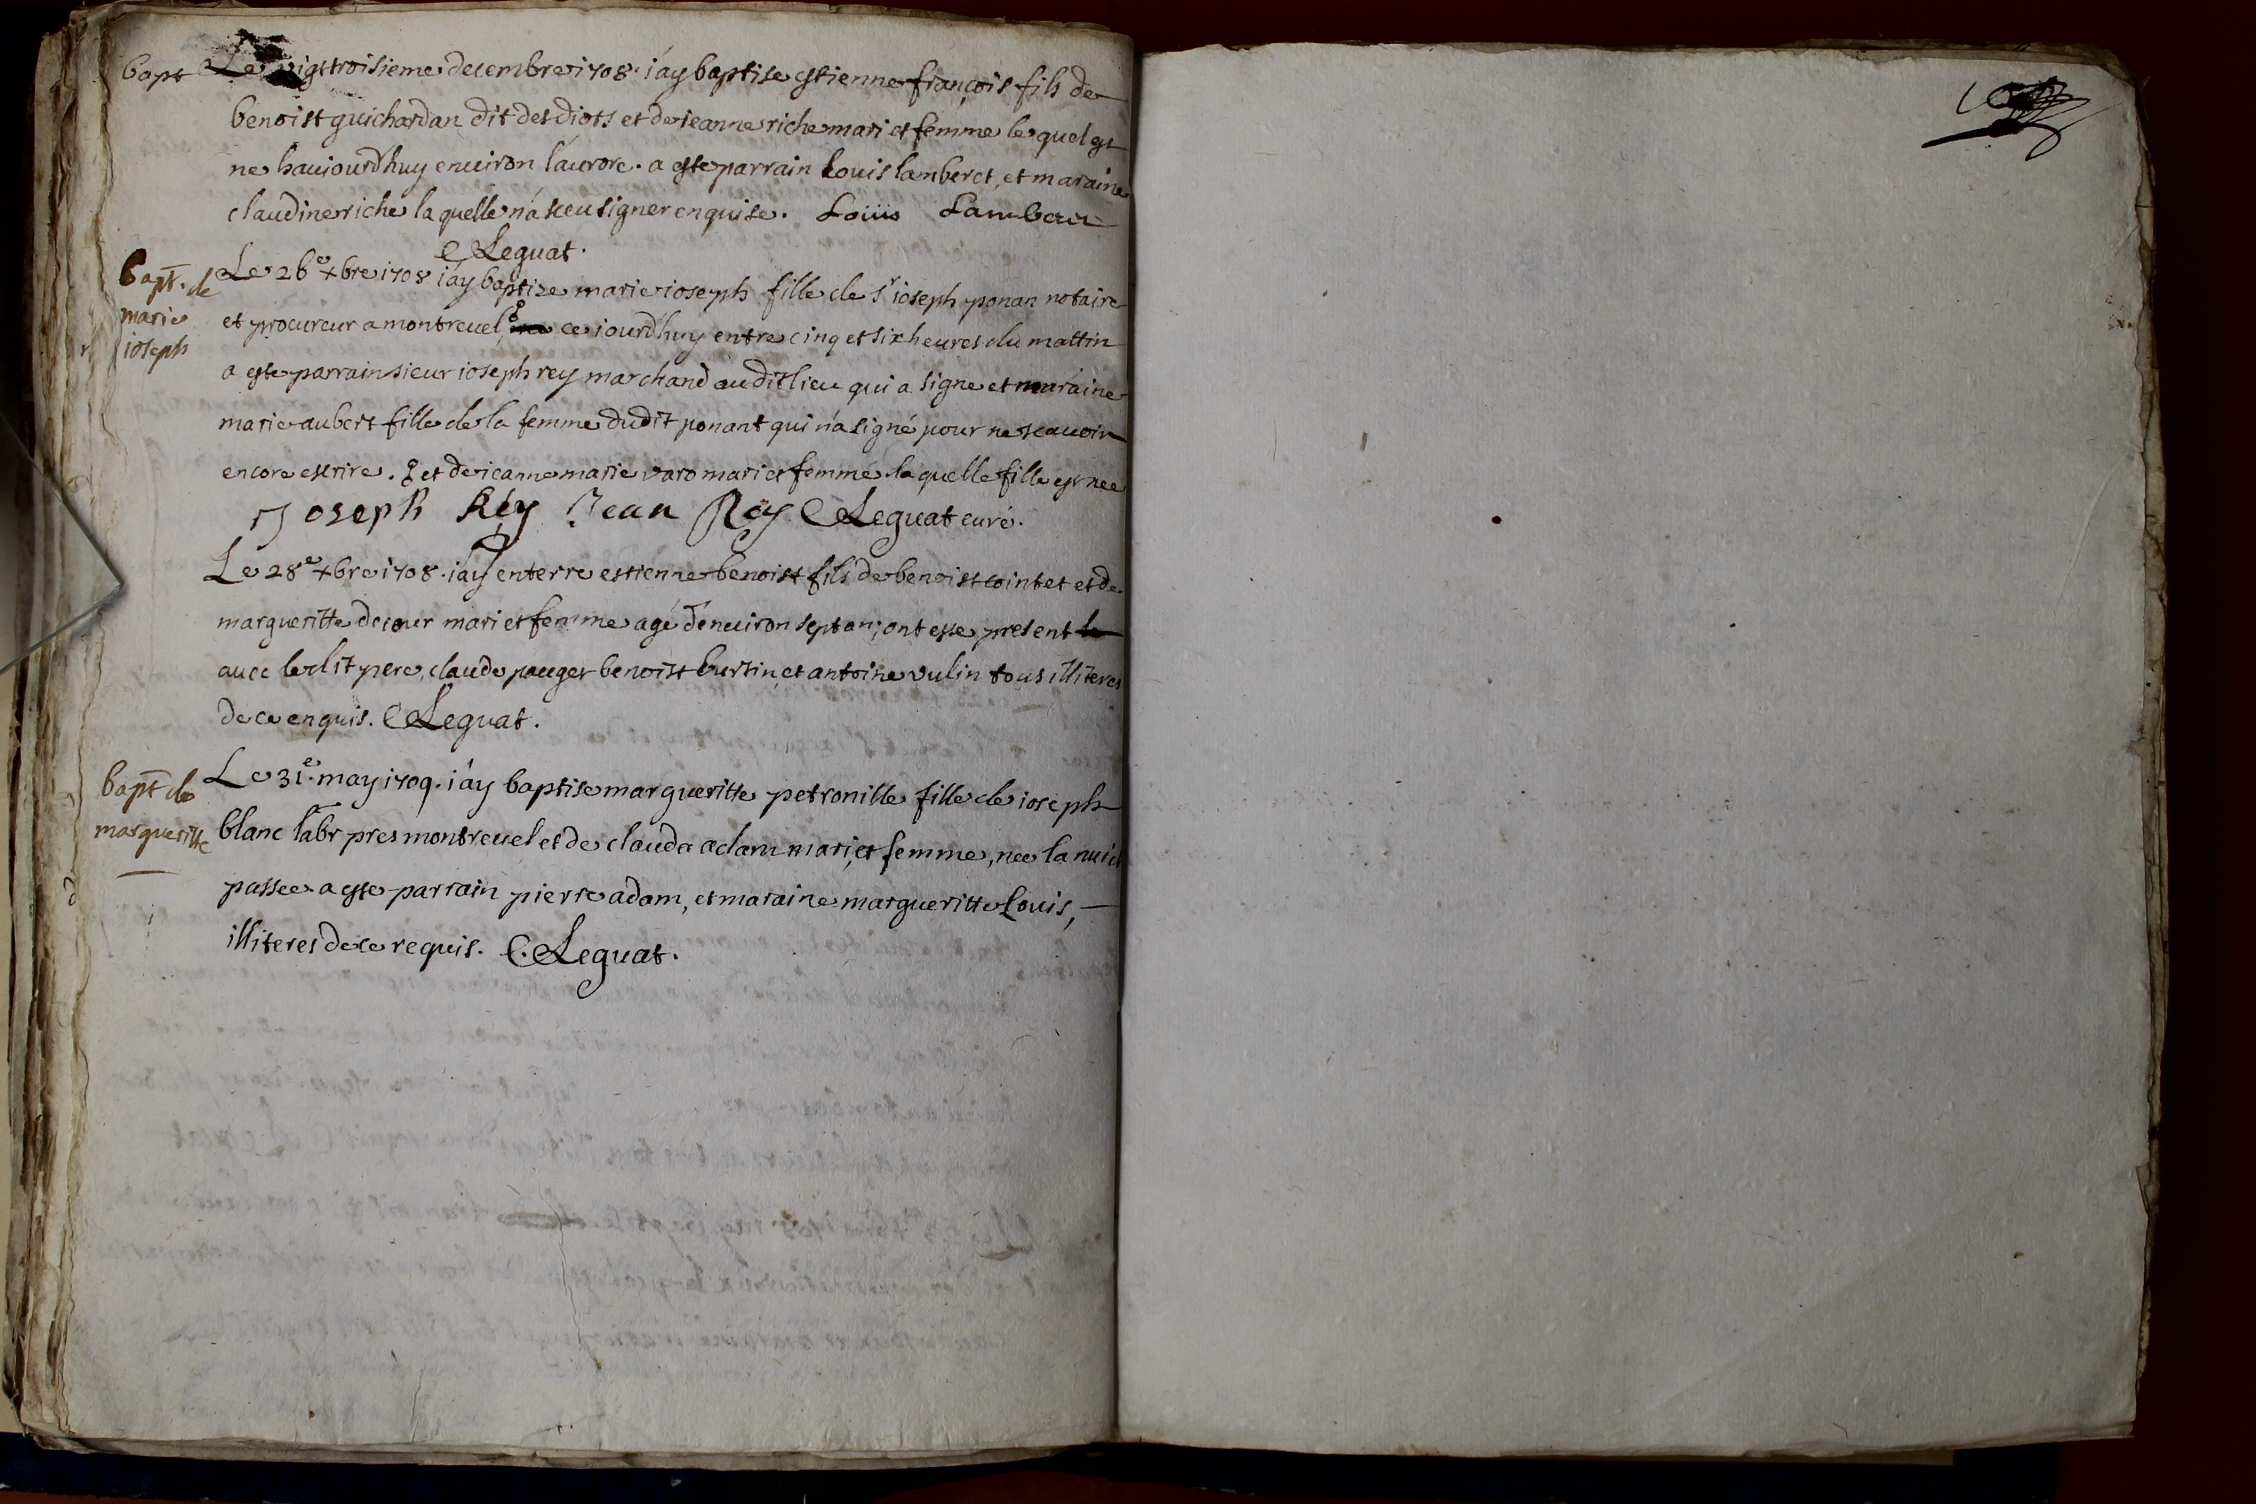 bapt Le vigttroisieme decembre 1708. iáy baptise estienne françois fils de
benoist guichardan dit des diots et de ieanne riche mari et femme le quel est
ne haujourdhuy enuiron láurore. a este parrain Louis lamberet, et maraine
claudine riche la quelle ná sceu signer enquise. Loüis Lamberet
C Leguat.
bapt. de
marie
ioseph
Le 26e xbre 1708 iáy baptize marie ioseph fille de sr ioseph ponan notaire
et procureur a montreuel, ce iourdhuy entre cinq et six heures du mattin
a este parrain sieur ioseph rey marchand audit lieu qui a signe et maraine
marie aubert fille de la femme dudit ponant qui ná signé pour ne scauoir
encore escrire. et de ieanne marie varo mari et femme la quelle fille est nee
Joseph Réy Jean Rey C Leguat curé.
Le 28e xbre 1708. iáy enterre estienne benoist fils de benoist cointet et de
margueritte decour mari et femme agé dénuiron sept an; ont este present
auec le dit pere, claude pauget benoist burtin, et antoine vulin tous illiteres
de ce enquis. C Leguat.
bapt de
margueritte
Le 31e. may 1709. iáy baptise margueritte petronille fille de ioseph
blanc labr pres montreuel et de clauda adam mari, et femme, nee la nuict
passee a este parrain pierre adam, et maraine margueritte Louis,
illiteres de ce requis. C. Leguat.